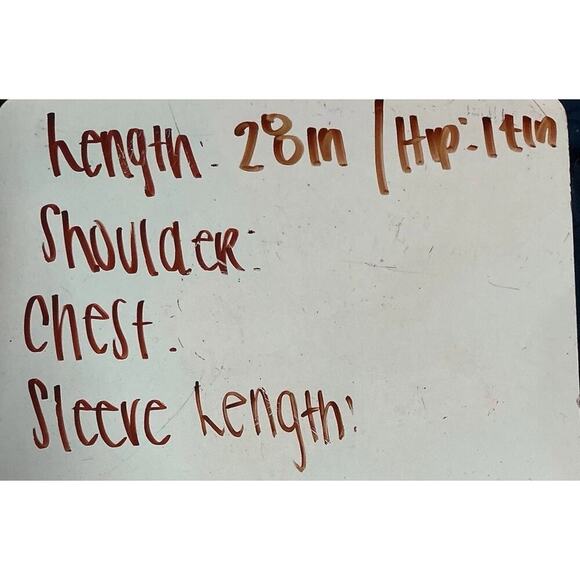 Length: 28in / Hip: 17in
Shoulder:
Chest:
Sleeve Length: